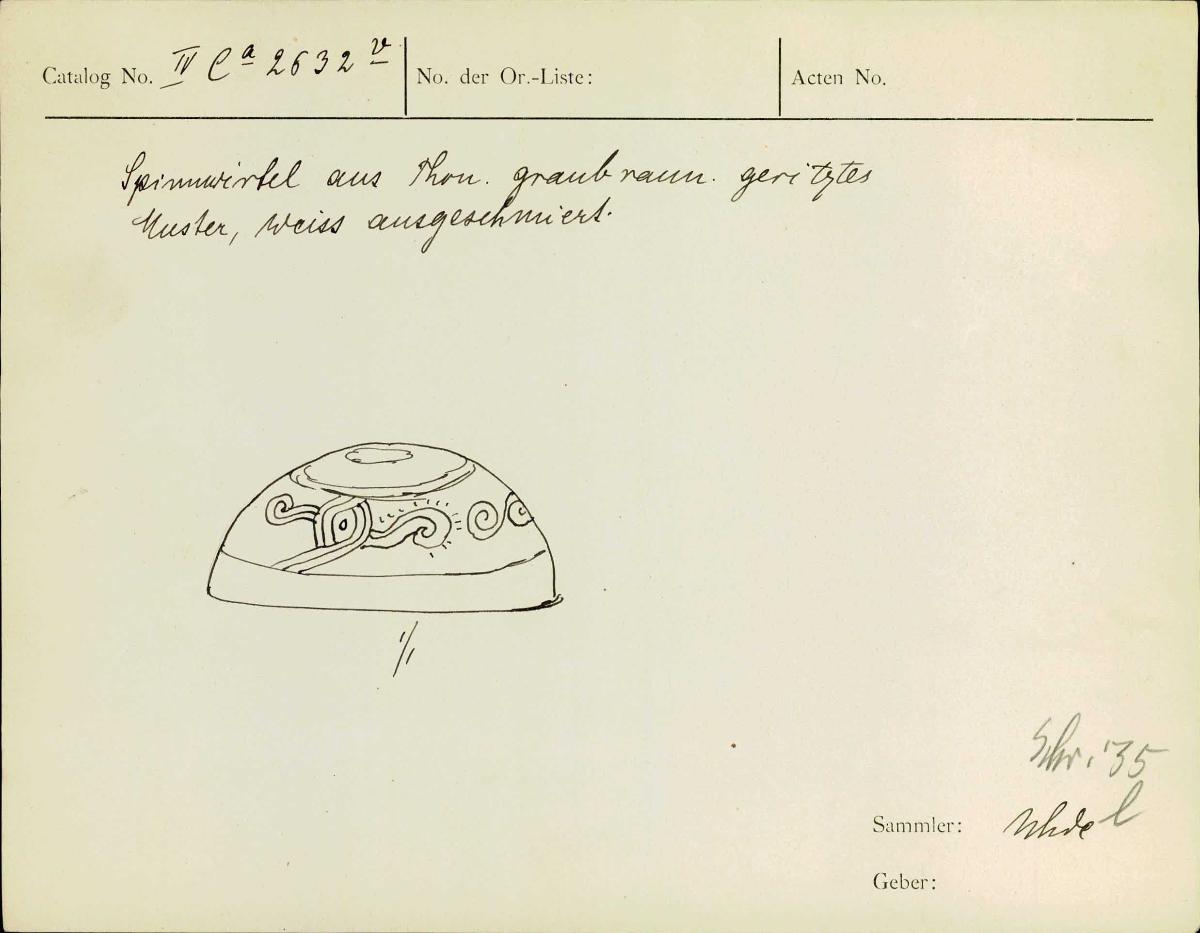 Catalog No. IV Ca 2632 v No. der Or.-Liste: Acten No.
Spinnwirtel aus Thon. graubraun. geritztes
Muster, weiss ausgeschmiert.
1/1
Schr. '35
Sammler: Uhde l
Geber: